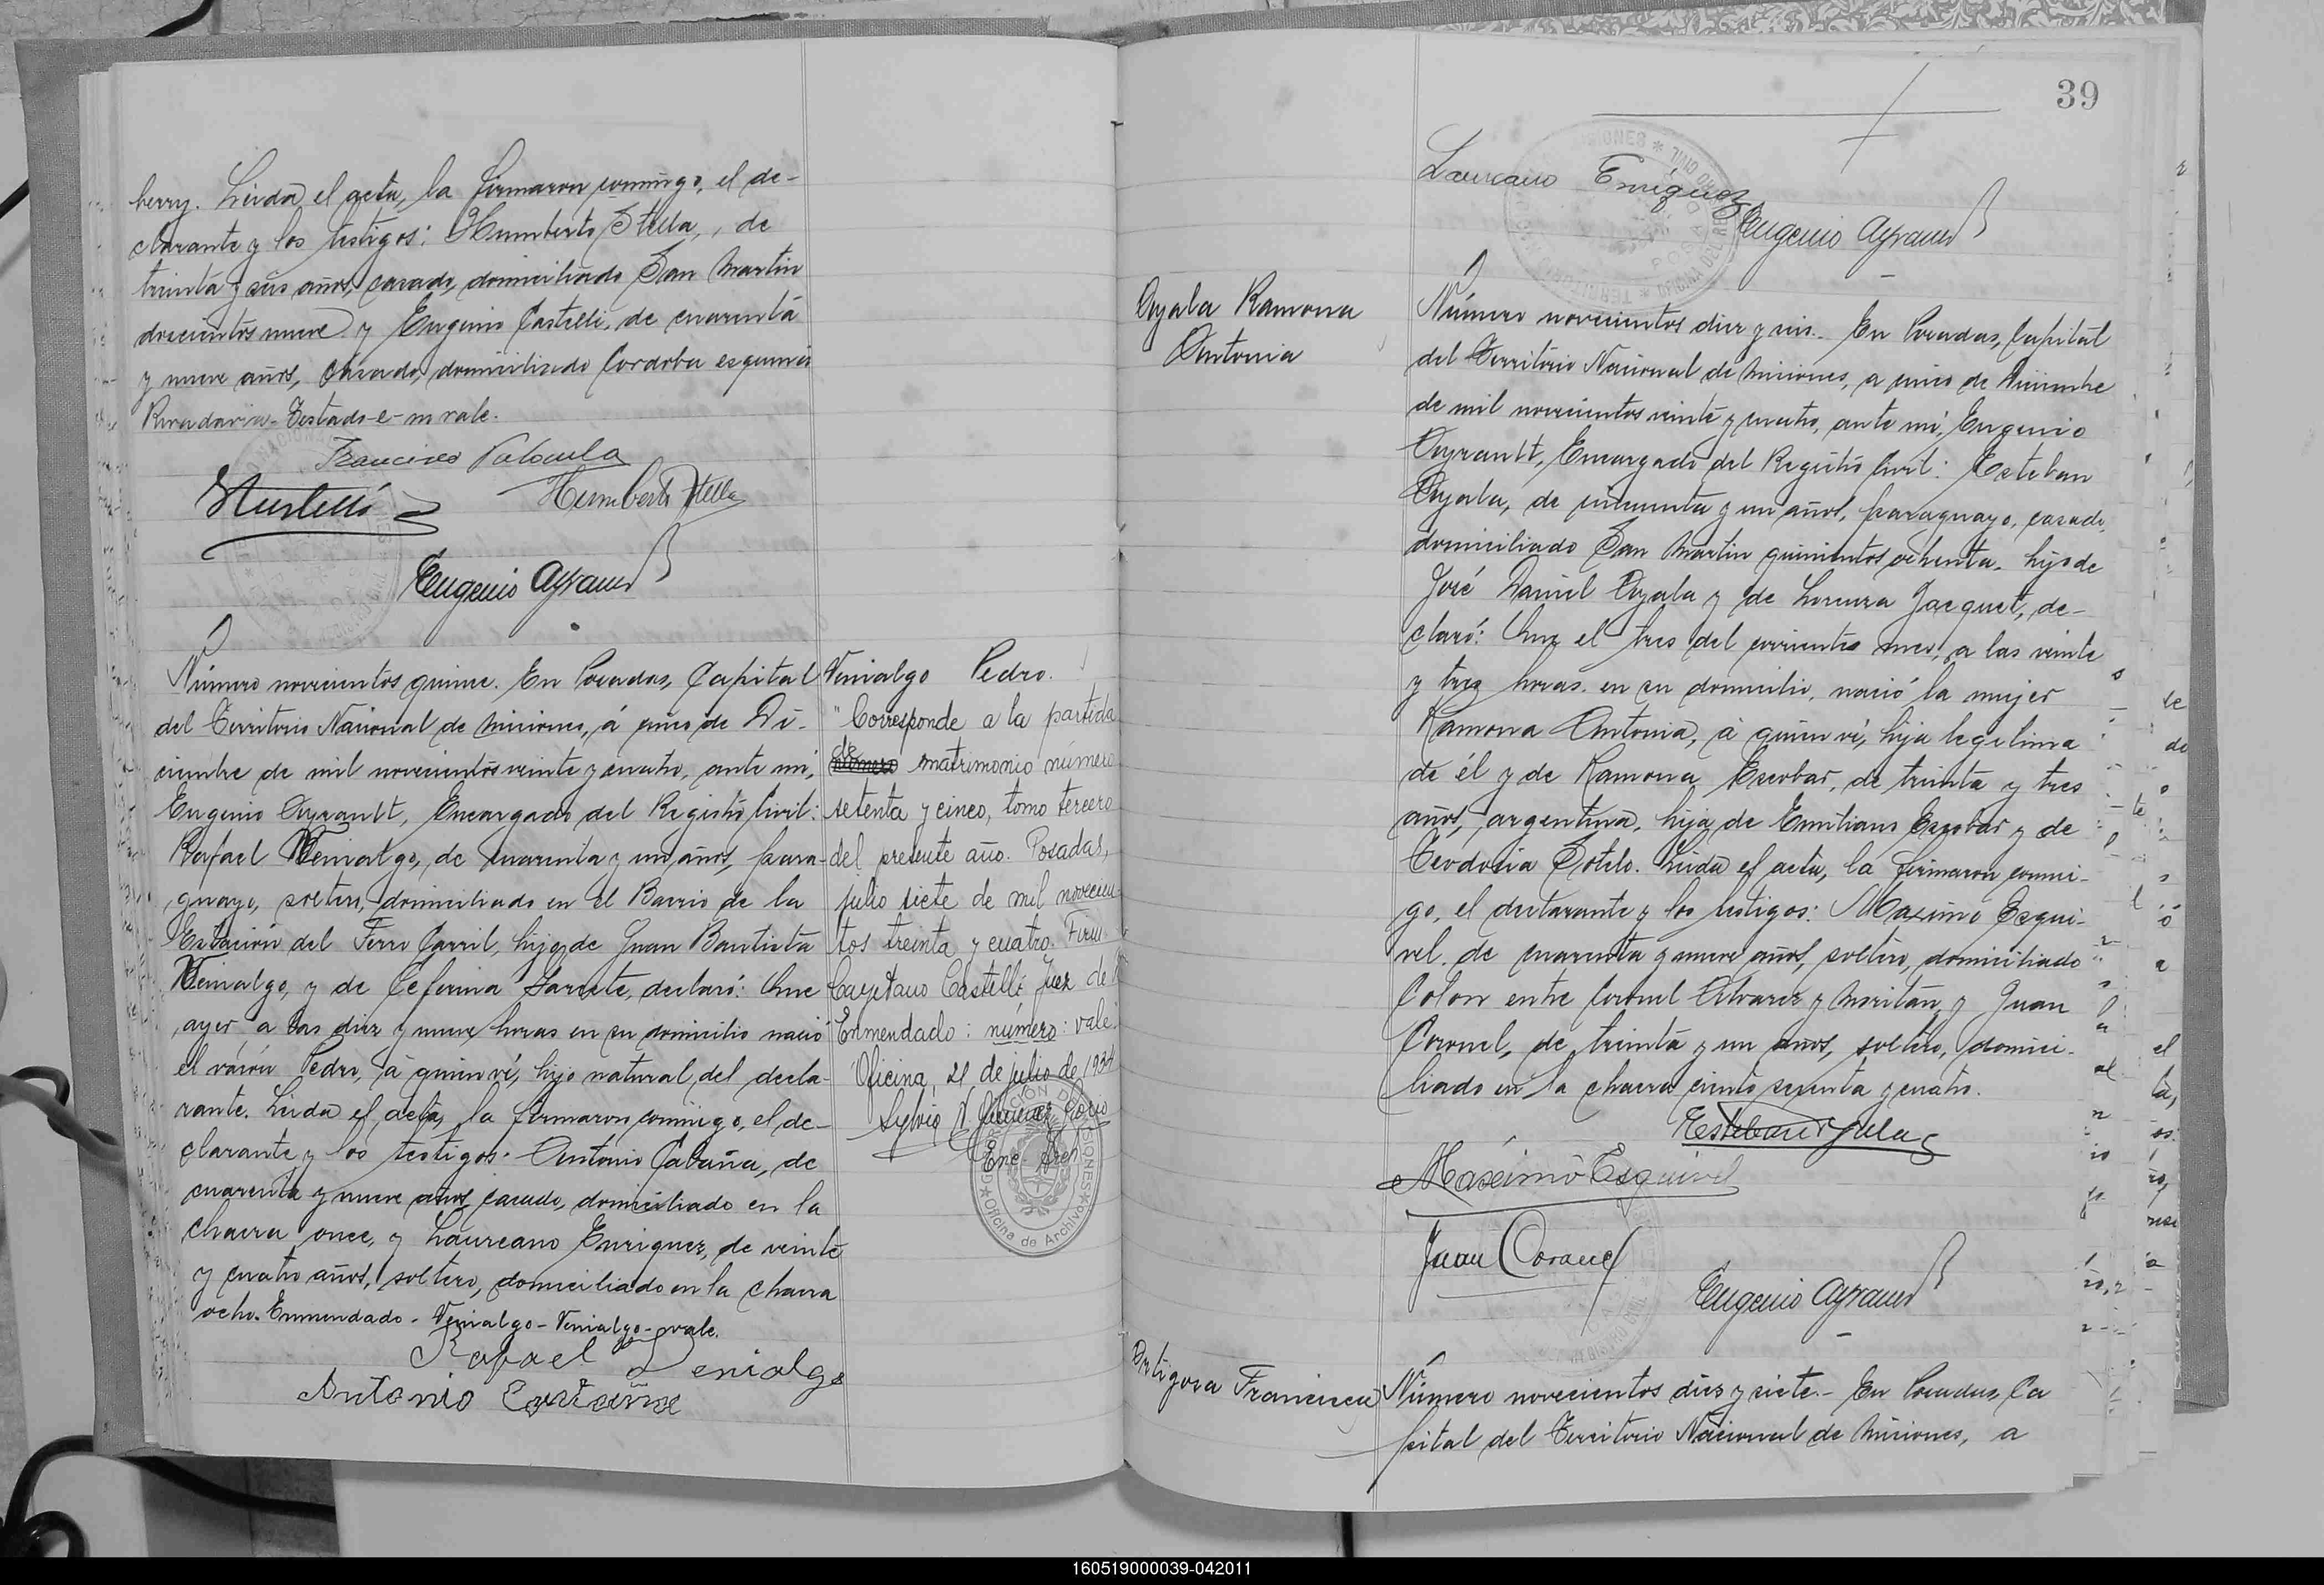 berry. Leída el acta, la firmaron conmigo, el de-
clarante y los testigos: Humberto Stella, de
treinta y seis años, casado, domiciliado San Martin
doscientos nueve y Eugenio Castelli, de cuarenta
y nueve años, casado, domiciliado Cordoba esquina
Rivadavia - Testado-e-m vale.
Francisco
Humberto Stella
Eugenio Ayrault
Número novecientos quince. En Posadas, Capital
del Territorio Nacional de Misiones, á cinco de Di-
ciembre de mil novecientos veinte y cuatro, ante mi,
Eugenio Ayrault, Encargado del Registro Civil:
Rafael Venialgo, de cuarenta y un años, para-
guayo, soltero, domiciliado en el Barrio de la
Estación del Ferro Carril, hijo de Juan Bautista
Venialgo, y de Ceferina Sarate, declaró: Que
ayer a las diez y nueve horas en su domicilio nació
el varón Pedro, á quien ví, hijo natural del decla-
rante. Leida el acta, la firmaron conmigo, el de-
clarante y los testigos: Antonio Cabaña, de
cuarenta y nueve años, casado, domiciliado en la
chacra once, y Laureano Enriquez, de veinte
y cuatro años, soltero, domiciliado en la chacra
ocho. Enmendado - Venialgo - Venialgo - vale.
Rafael Venialgo
Antonio Cabaña
Venialgo Pedro.
"Corresponde a la partida
de matrimonio número
setenta y cinco, tomo tercero
del presente año. Posadas,
julio siete de mil novecien-
tos treinta y cuatro. Firm.
Cayetano Castelli Juez de
Enmendado: número: vale.
Oficina, 21 de julio de 1934
Sylvio N. Gimenez
Enc. Arch.
Oficina de Archivo
39
Laureano Enriquez
Eugenio Ayrault
Ayala Ramona
Antonia
Número novecientos diez y seis.- En Posadas, Capital
del Territorio Nacional de Misiones, a cinco de Diciembre
de mil novecientos veinte y cuatro, ante mí, Eugenio
Ayrault, Encargado del Registro Civil: Esteban
Ayala, de cincuenta y un años, paraguayo, casado,
domiciliado San Martin quinientos ochenta, hijo de
José Daniel Ayala y de Lorenza Jacquet, de-
claró: Que el tres del corriente mes, a las veinte
y tres horas, en su domicilio, nació la mujer
Ramona Antonia, á quien ví, hija legitima
de él y de Ramona Escobar, de treinta y tres
años, argentina, hija de Emiliano Escobar y de
Teodosia Sotelo. Leida el acta, la firmaron conmi-
go, el declarante y los testigos: Maximo Esqui-
vel, de cuarenta y nueve años, soltero, domiciliado
Colon entre Coronel Alvarez y Moritán, y Juan
Coronel, de treinta y un años, soltero, domici-
liado en la chacra ciento sesenta y cuatro.
Esteban Ayala
Maximo Esquivel
Juan Coronel
Eugenio Ayrault
Ortigoza Francisca
Número novecientos diez y siete.- En Posadas, Ca
pital del Territorio Nacional de Misiones, a
160519000039-042011